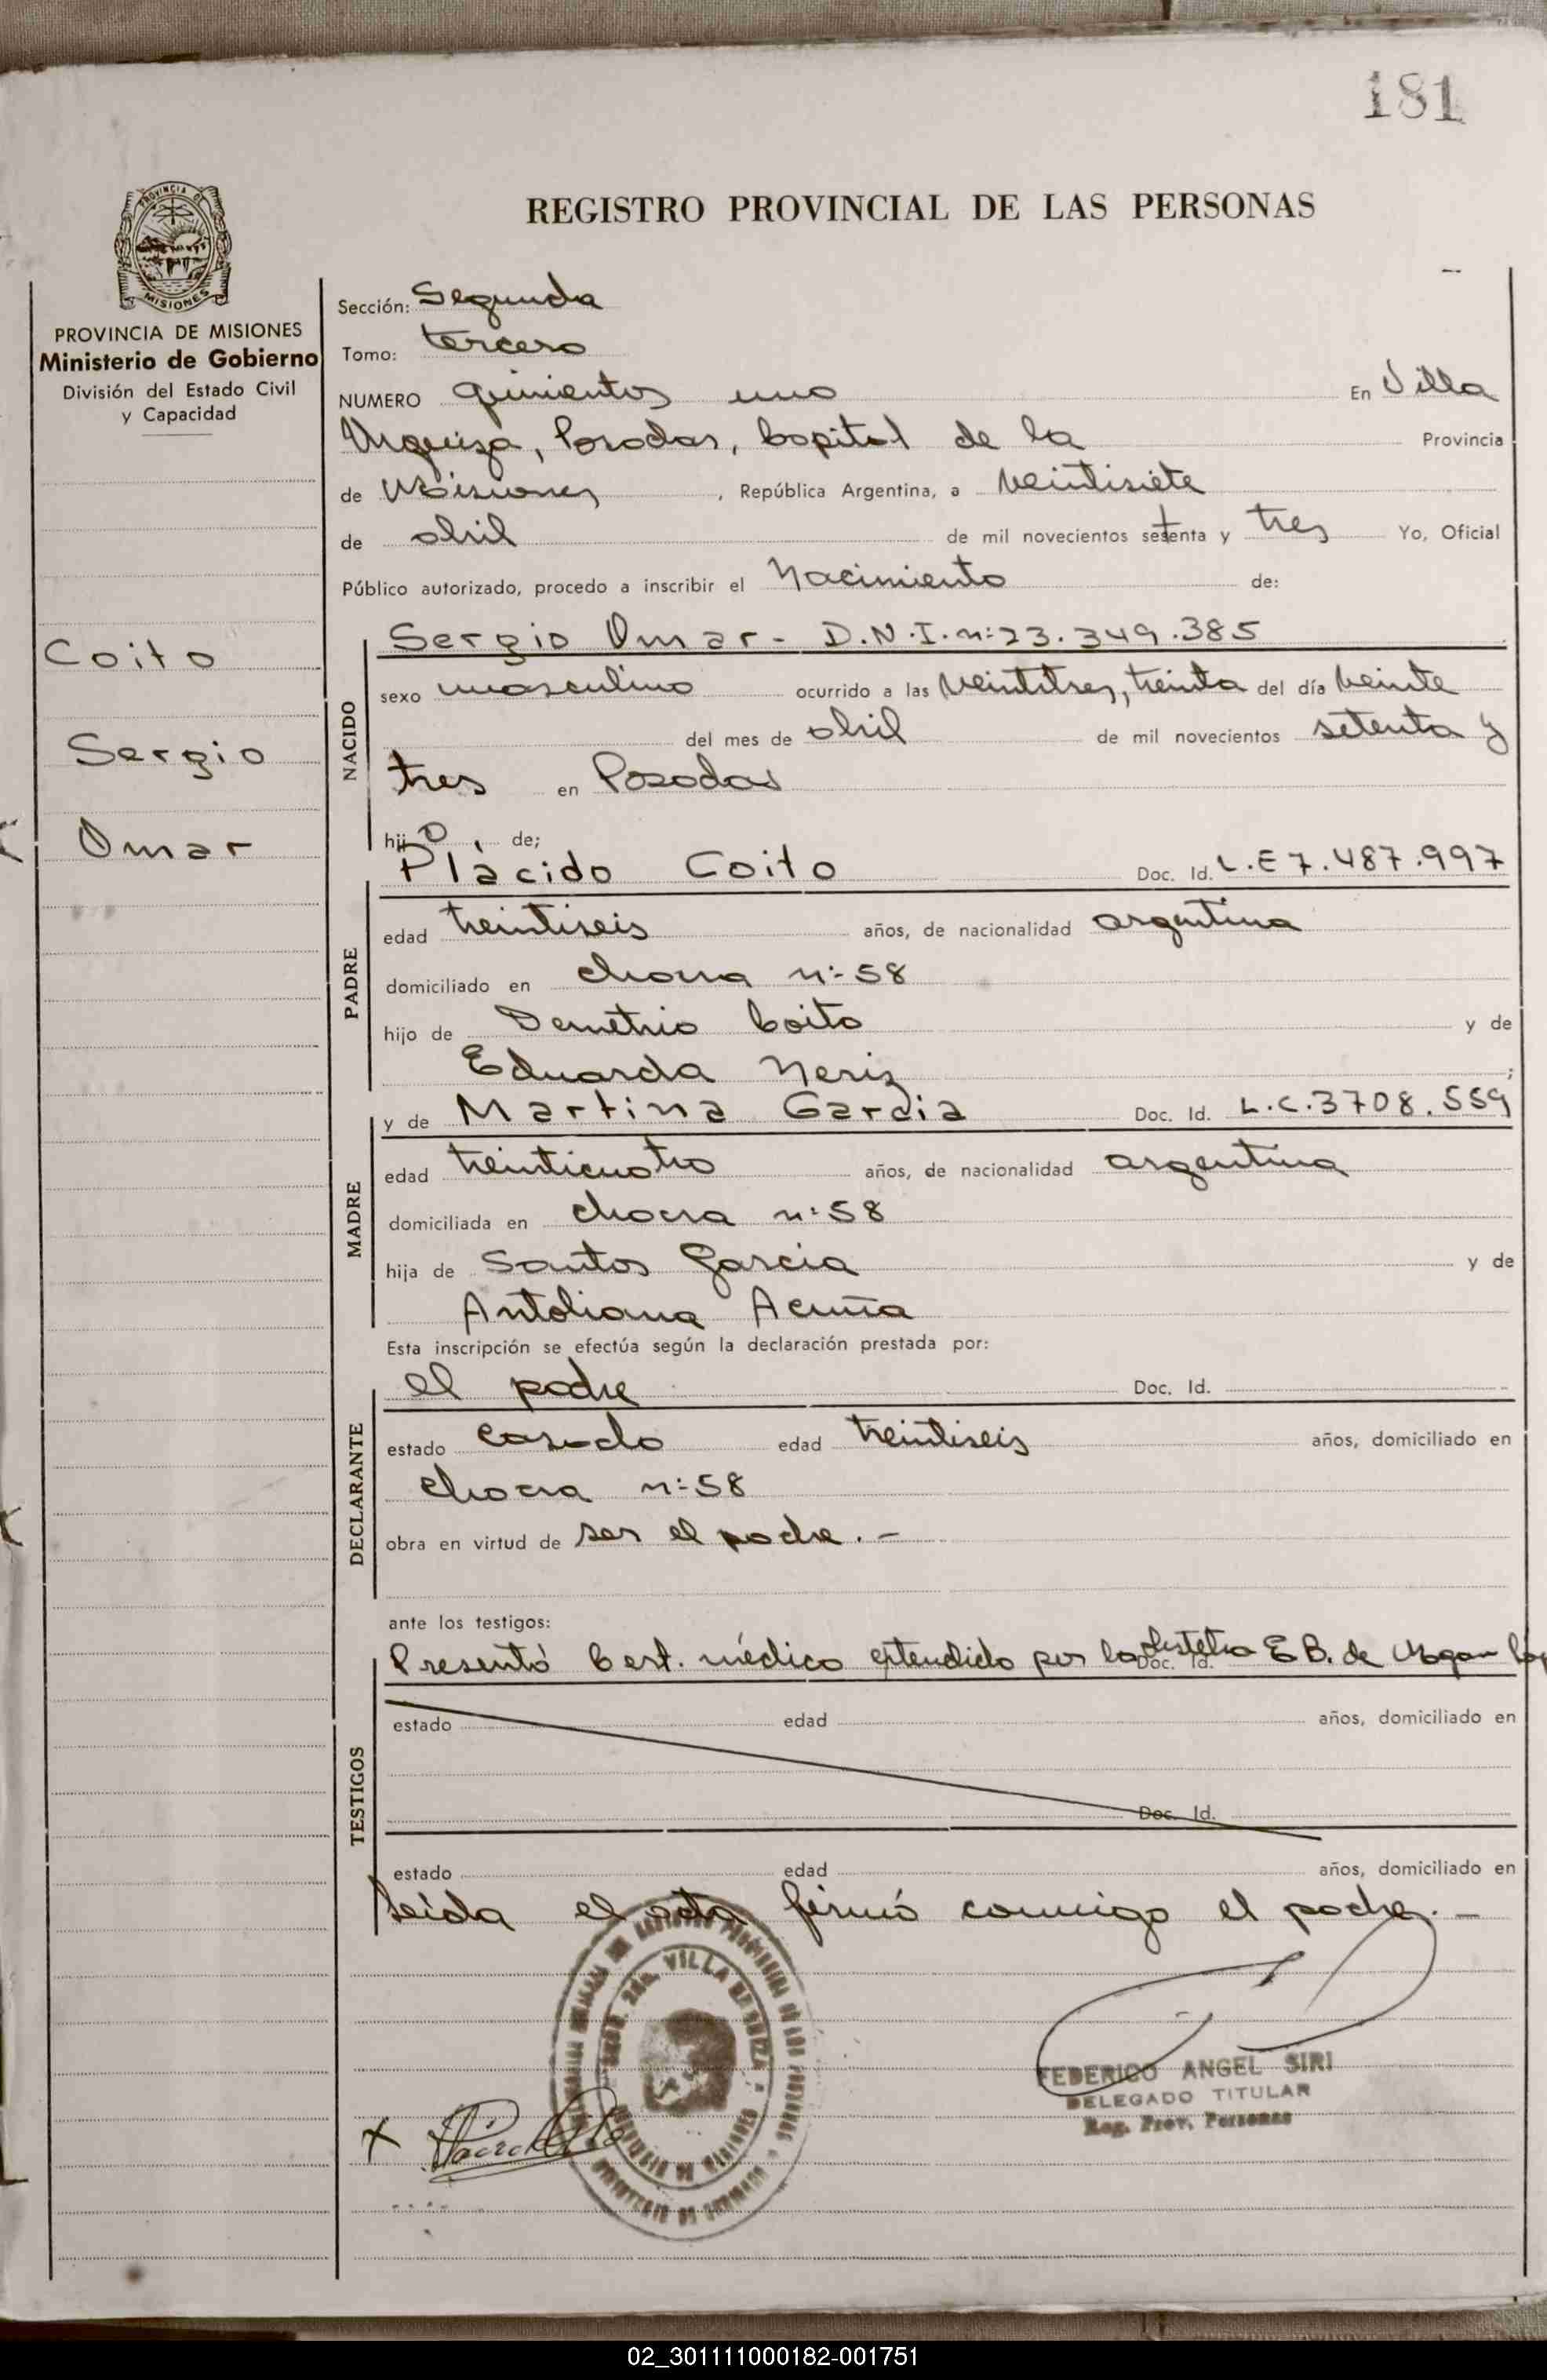 181
REGISTRO PROVINCIAL DE LAS PERSONAS
PROVINCIA DE MISIONES
PROVINCIA DE MISIONES
Ministerio de Gobierno
División del Estado Civil
y Capacidad
Coito
Sergio
Omar
Sección: Segunda
Tomo: tercero
NUMERO quinientos uno En Villa
Urquiza, Posadas, Capital de la Provincia
de Misiones, República Argentina, a veintisiete
de abril de mil novecientos setenta y tres Yo, Oficial
Público autorizado, procedo a inscribir el Nacimiento de:
NACIDO
Sergio Omar - D.N.I. n:23.349.385
sexo masculino ocurrido a las veintitres, treinta del día veinte
del mes de abril de mil novecientos setenta y
tres en Posadas
hijo de;
PADRE
Plácido Coito Doc. Id. L.E 7.487.997
edad treintiseis años, de nacionalidad argentina
domiciliado en chacra n:58
hijo de Demetrio Coito y de
Eduarda Neriz;
MADRE
y de Martina Garcia Doc. Id. L.C.3708.559
edad treinticuatro años, de nacionalidad argentina
domiciliada en chacra n:58
hija de Santos Garcia y de
Antoliana Acuña
Esta inscripción se efectúa según la declaración prestada por:
DECLARANTE
el padre Doc. Id.
estado casado edad treintiseis años, domiciliado en
chacra n:58
obra en virtud de ser el padre.-
ante los testigos:
TESTIGOS
Presentó Cert. médico extendido por la obstetra Doc. Id. E B. de
estado edad años, domiciliado en
Doc. Id.
estado edad años, domiciliado en
Leida el acta firmó conmigo el padre.-
VILLA URQUIZA
FEDERICO ANGEL SIRI
DELEGADO TITULAR
Reg. Prov. Personas
02_301111000182-001751